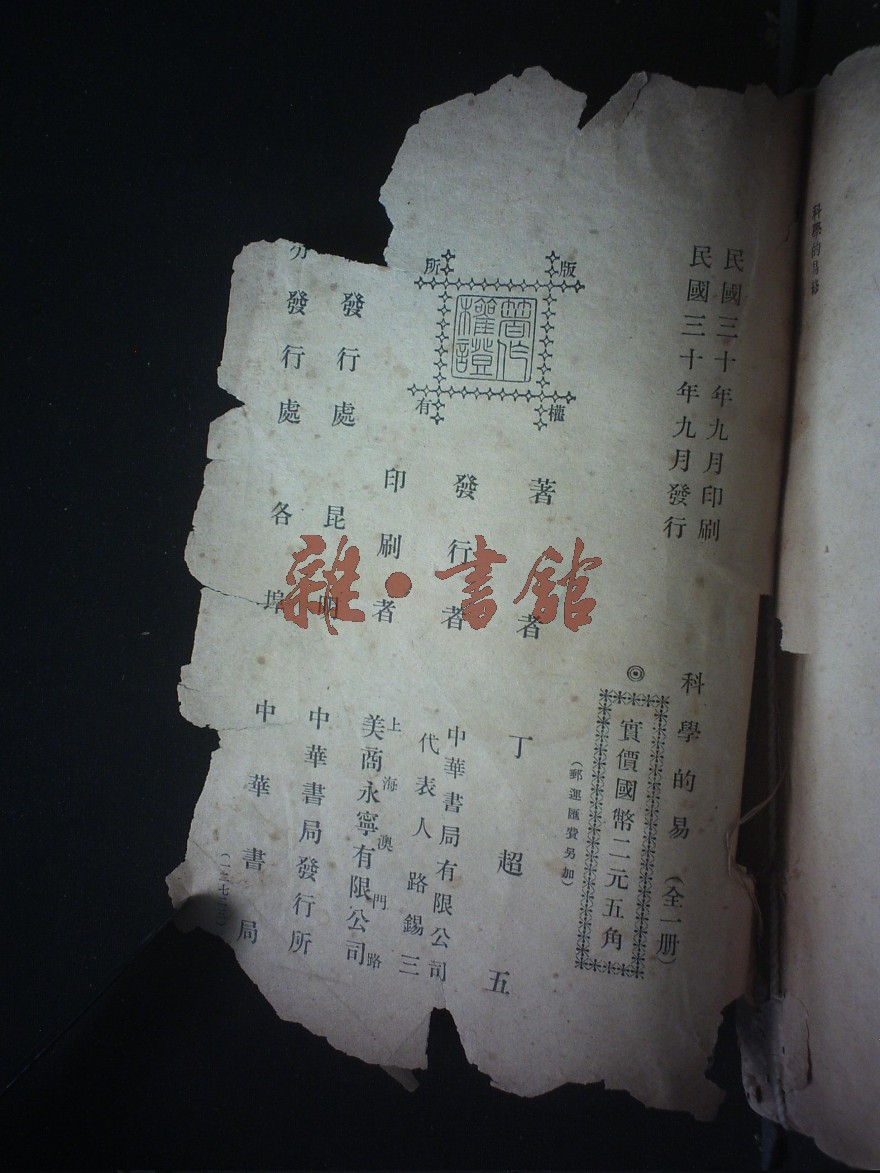 民國三十年九月印刷
民國三十年九月發行
科學的易（全一册）
◎實價國幣二元五角
（郵運匯費另加）
版權所有
著作權證
著者 丁超五
發行者 中華書局有限公司
代表人 路錫三
印刷者 上海澳門路
美商永寧有限公司
發行處 昆明 中華書局發行所
分發行處 各埠 中華書局
雜·書館
科學的易